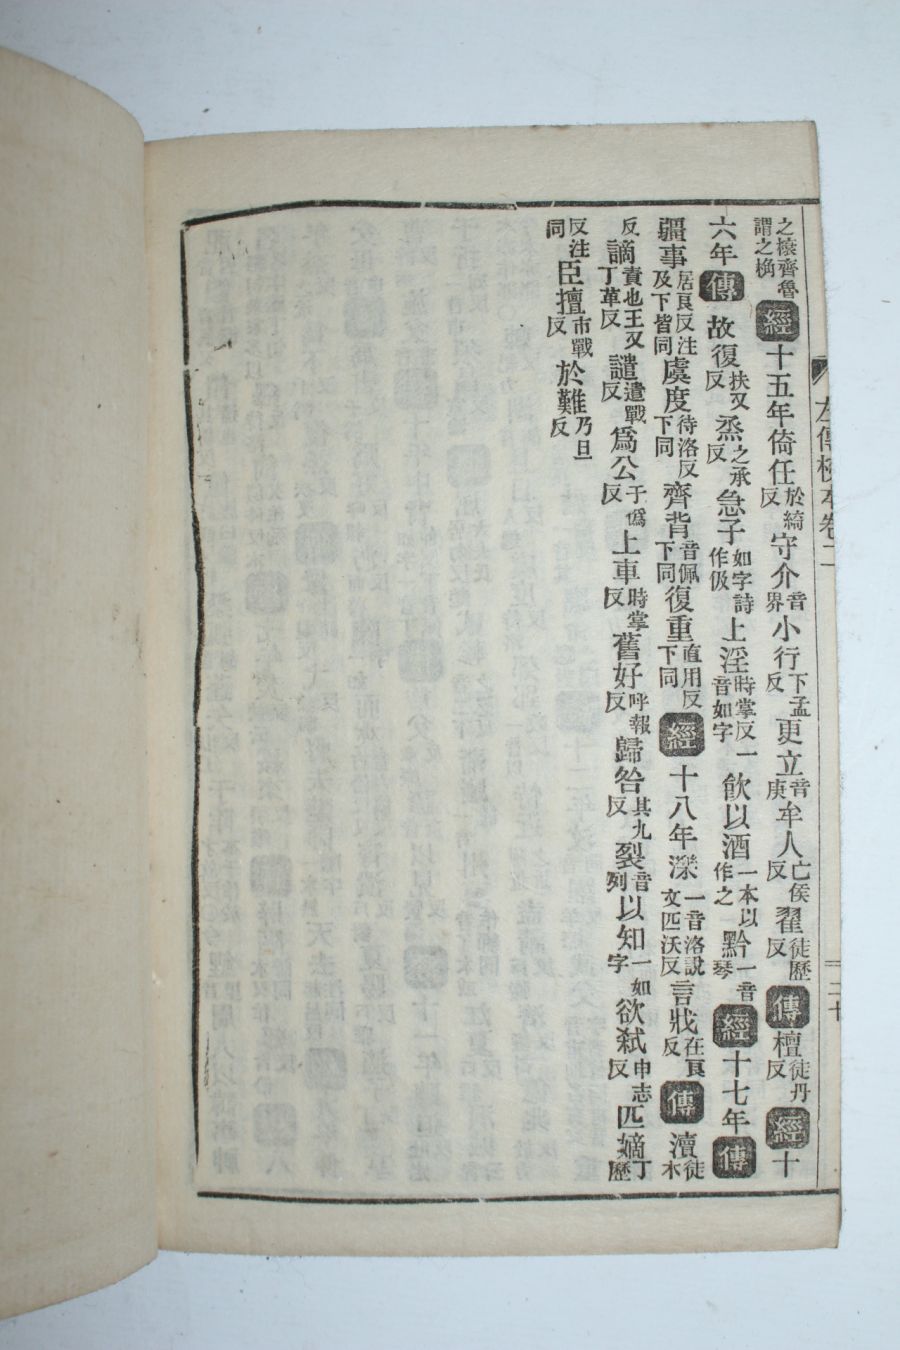 之榱齊魯謂之桷經十五年倚任於綺反守介音界小行下孟反更立音庚牟人亡侯反翟徒歷反傳檀徒丹反經十
六年傳故復扶又反烝之承反急子如字詩作伋上淫時掌反一音如字飲以酒一本以作之黔一音琴經十七年傳
疆事居良反注及下皆同虞度待洛反下同齊背音佩下同復重直用反下同經十八年濼一音洛說文匹沃反言戕在良反傳瀆徒木
反謫責也王又丁革反譴遣戰反爲公于僞反上車時掌反舊好呼報反歸咎其九反裂音列以知一如字欲弑申志反匹嫡丁歷
反注同臣擅市戰反於難乃旦反
左傳校本卷二
二十